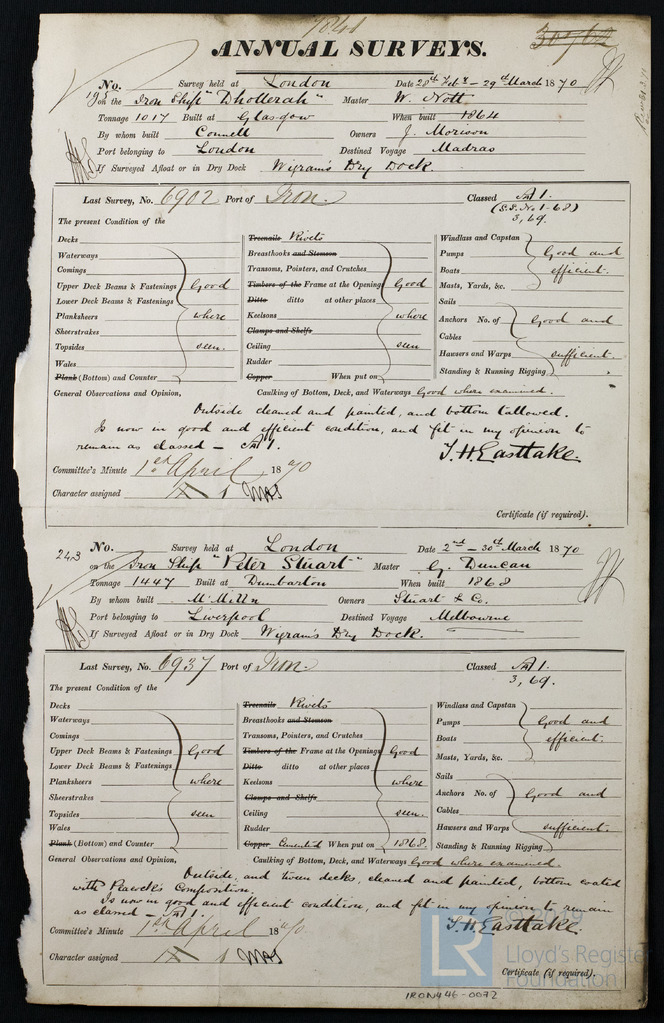 ANNUAL SURVEYS.
No. Survey held at London Date 28th Feby - 29th March 1870
195 on the Iron Ship "Dhollerah" Master W. Nott
Tonnage 1017 Built at Glasgow When built 1864
By whom built Connell Owners J. Morison
Port belonging to London Destined Voyage Madras
If Surveyed Afloat or in Dry Dock Wigram's Dry Dock.
Last Survey, No. 6902 Port of Iron. Classed A1.
(S.S. No 1-68)
3, 69.
The present Condition of the
Decks
Waterways
Comings
Upper Deck Beams & Fastenings Good
Lower Deck Beams & Fastenings
Planksheers where
Sheerstrakes
Topsides seen.
Wales
Plank (Bottom) and Counter
Treenails Rivets
Breasthooks and Stemson
Transoms, Pointers, and Crutches
Timbers of the Frame at the Openings Good
Ditto ditto at other places
Keelsons where
Clamps and Shelfs
Ceiling seen.
Rudder
Copper When put on
Windlass and Capstan
Pumps Good and
Boats efficient.
Masts, Yards, &c.
Sails
Anchors No. of Good and
Cables
Hawsers and Warps sufficient.
Standing & Running Rigging
General Observations and Opinion, Caulking of Bottom, Deck, and Waterways Good where examined.
Outside cleaned and painted, and bottom tallowed.
Is now in good and efficient condition, and fit in my opinion to
remain as classed - A1.
T. H. Eastlake.
Committee's Minute 1st April 1870
Character assigned
Certificate (if required).
243 No. Survey held at London Date 2nd - 30th March 1870
on the Iron Ship "Peter Stuart" Master G. Duncan
Tonnage 1447 Built at Dumbarton When built 1868
By whom built McMilln Owners Stuart & Co.
Port belonging to Liverpool Destined Voyage Melbourne
If Surveyed Afloat or in Dry Dock Wigram's Dry Dock.
Last Survey, No. 6937 Port of Iron. Classed A1.
3, 69.
The present Condition of the
Decks
Waterways
Comings
Upper Deck Beams & Fastenings Good
Lower Deck Beams & Fastenings
Planksheers where
Sheerstrakes
Topsides seen
Wales
Plank (Bottom) and Counter
Treenails Rivets
Breasthooks and Stemson
Transoms, Pointers, and Crutches
Timbers of the Frame at the Openings Good
Ditto ditto at other places
Keelsons where
Clamps and Shelfs
Ceiling seen.
Rudder
Copper Cemented When put on 1868.
Windlass and Capstan
Pumps Good and
Boats efficient.
Masts, Yards, &c.
Sails
Anchors No. of Good and
Cables
Hawsers and Warps sufficient.
Standing & Running Rigging
General Observations and Opinion, Caulking of Bottom, Deck, and Waterways Good where examined.
Outside, and tween decks, cleaned and painted, bottom coated
with Peacock's Composition.
Is now in good and efficient condition, and fit in my opinion to remain
as classed - A1.
T. H. Eastlake.
Committee's Minute 1st April 1870
Character assigned
Certificate (if required).
© 2019
LR Lloyd's Register
Foundation
IRON446-0072